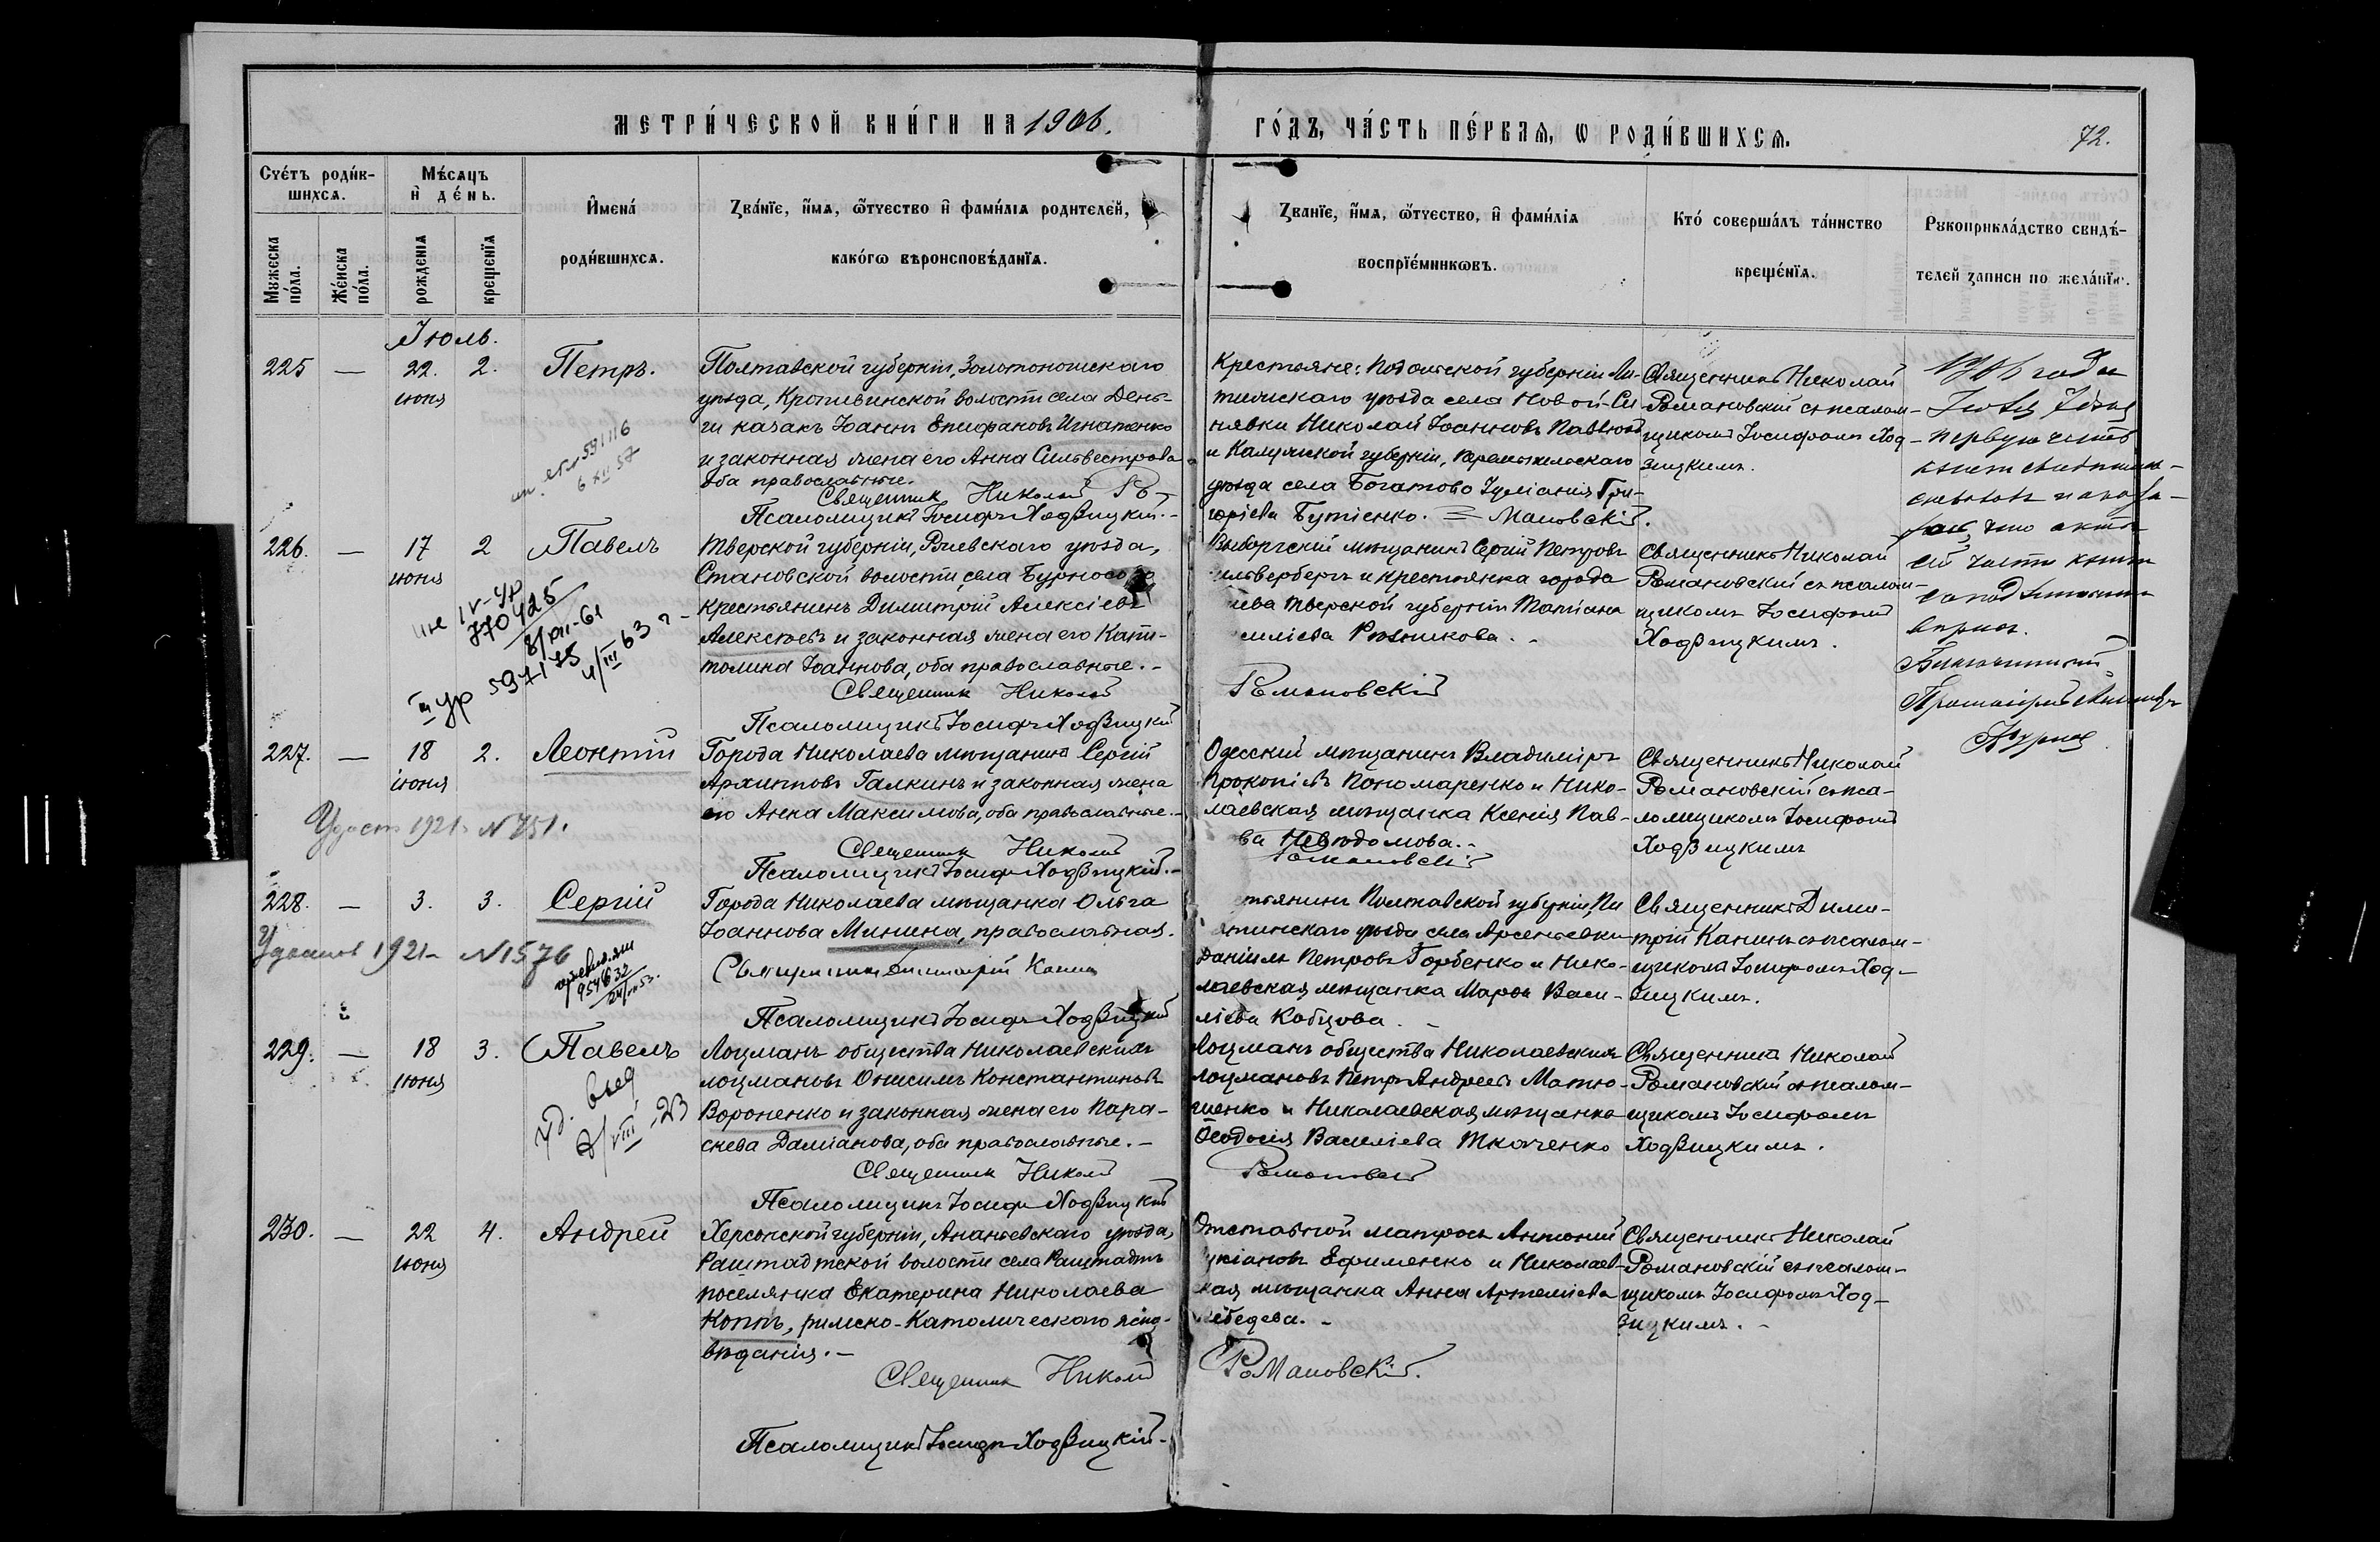 МЕТРИ́ЧЕСКОЙ КНИ́ГИ НА 1906.
ГО́ДЪ, ЧА́СТЬ ПЕ́РВАЯ, Ѡ РОДИ́ВШИХСѦ.
72.
Сче́тъ роди́в-
шихсѧ.
Мужеска по́ла.
Же́нска по́ла.
Мѣ́сѧцъ
и҆ де́нь.
рожденїѧ
крещенїѧ
И҆мена́
роди́вшихсѧ.
Зва́нїе, и҆́мѧ, ѻ҆́тчество и҆ фами́лїѧ родителе́й,
како́гѡ вѣроисповѣ́данїѧ.
Зва́нїе, и҆́мѧ, ѻ҆́тчество, и҆ фами́лїѧ
воспрїе́мникѡвъ.
Кто́ соверша́лъ та́инство
креще́нїѧ.
Рукоприкла́дство свидѣ́-
телей записи по жела́нїю.
Іюль.
225 — 22. 2. Петръ.
іюня
Полтавской губерніи, Золотоношскаго
уѣзда, Кропивинской волости села День-
ги казакъ Іоаннъ Епифановъ Игнатенко
и законная жена его Анна Сильвестрова
оба православные.
Священник Николай Ро-
Псаломщикъ Іосифъ Ходзицкій.-
Крестьяне: Подольской губерніи Ли-
тинскаго уѣзда села Новой-Си-
нявки Николай Іоанновъ
и Калужской губерніи, Перемышльскаго
уѣзда села Богатово Іуліанія Гри-
горіева Бутіенко. = Мановскій.
Священникъ Николай
Романовскій съ псалом-
щикомъ Іосифомъ Ход-
зицкимъ.
1906 года
первую часть
что акты
сей части книги
верно.
Благочинный
Протоіерей
591116
6 XII 57
226. — 17 2 Павелъ
іюня
Тверской губерніи, Ржевскаго уѣзда,
Становской волости, села Бурносово
крестьянинъ Димитрій Алексіевъ
Алексѣевъ и законная жена его Капи-
толина Іоаннова, оба православные.-
Священник Николай
Псаломщикъ Іосифъ Ходзицкій
Выборгскій мѣщанинъ Сергій Петровъ
ильверберъ и крестьянка города
жева Тверской губерніи Татіана
силіева
Романовскій
Священникъ Николай
Романовскій съ псалом-
щикомъ Іосифомъ
Ходзицкимъ.
IV-УР
770425
8/VII-61
III УР 597175 4/III 63 г-
227. — 18 2. Леонтій
іюня
Города Николаева мѣщанинъ Сергій
Архиповъ Галкинъ и законная жена
его Анна Максимова, оба православные.-
Священник Николай
Псаломщикъ Іосифъ Ходзицкій.-
Одесскій мѣщанинъ Владиміръ
Прокопіевъ Пономаренко и Нико-
лаевская мѣщанка Ксенія Пав-
ва Невѣдомова.-
Романовскій
Священникъ Николай
Романовскій съ пса-
ломщикомъ Іосифомъ
Ходзицкимъ
Удост 1921 N 751.
228. — 3. 3. Сергій
Города Николаева мѣщанка Ольга
Іоаннова Минина, православная.
Священникъ Димитрій Канин
Псаломщикъ Іосифъ Ходзицкій
тьянинъ Полтавской губерніи, Пи
ятинскаго уѣзда села Арсеньевки
Даніилъ Петровъ Горбенко и Нико-
лаевская мѣщанка Марѳа Васи-
ліева Кобцова.-
Священникъ Дими-
трій Канинъ съ псалом-
щикомъ Іосифомъ Ход-
зицкимъ.
1921- N 1576
954632
229. — 18 3. Павелъ
іюня
Лоцманъ общества Николаевскихъ
лоцмановъ Онисимъ Константиновъ
Вороненко и законная жена его Пара-
скева Даміанова, оба православные.-
Священник Николай
Псаломщикъ Іосифъ Ходзицкій
Лоцманъ общества Николаевскихъ
лоцмановъ Петръ Андреевъ Матю-
шенко и Николаевская мѣщанка
Ѳеодосія Василіева Ткаченко
Романовскій
Священникъ Николай
Романовскій съ псалом-
щикомъ Іосифомъ
Ходзицкимъ.
VIII-23
230. — 22 4. Андрей
іюня
Херсонской губерніи, Ананьевскаго уѣзда,
Раштадтской волости села Раштадтъ
поселянка Екатерина Николаева
Коптъ, римско-католическаго испо-
вѣданія.-
Священник Николай
Псаломщикъ Іосифъ Ходзицкій-
Отставной матросъ Антоній
укіановъ Ефименко и Николаев-
кая мѣщанка Анна Артеміева
Лебедева.-
Романовскій.
Священникъ Николай
Романовскій съ псалом-
щикомъ Іосифомъ Ход-
зицкимъ.-